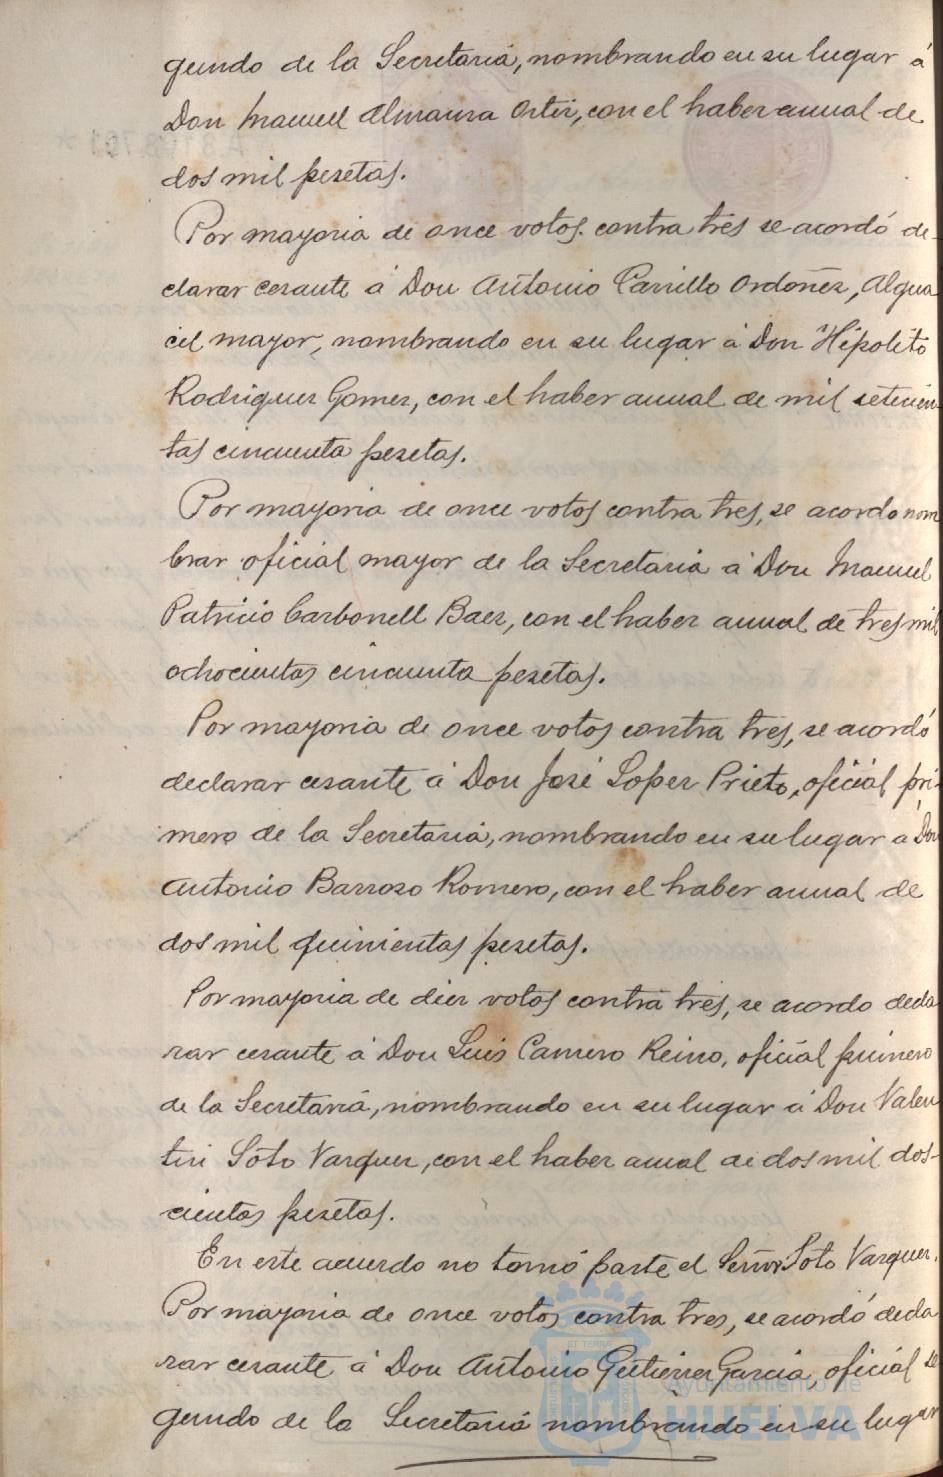 gundo de la Secretaria, nombrando en su lugar á
Don Manuel Almansa Ortiz, con el haber anual de
dos mil pesetas.
Por mayoria de once votos contra tres se acordó de-
clarar cesante á Don Antonio Carrillo Ordoñez, Algua
cil mayor, nombrando en su lugar á Don Hipolito
Rodriguez Gomez, con el haber anual de mil setecien-
tas cincuenta pesetas.
Por mayoria de once votos contra tres, se acordo nom
brar oficial mayor de la Secretaria á Don Manuel
Patricio Carbonell Baez, con el haber anual de tres mil
ochocientas cincuenta pesetas.
Por mayoria de once votos contra tres, se acordó
declarar cesante á Don José Lopez Prieto, oficial pri-
mero de la Secretaria, nombrando en su lugar á Don
Antonio Barroso Romero, con el haber anual de
dos mil quinientas pesetas.
Por mayoria de diez votos contra tres, se acordo decla
rar cesante á Don Luis Camero Reino, oficial primero
de la Secretaria, nombrando en su lugar á Don Valen
tin Soto Vazquez, con el haber anual de dos mil dos-
cientas pesetas.
En este acuerdo no tomó parte el Señor Soto Vazquez.
Por mayoria de once votos contra tres, se acordó decla
rar cesante á Don Antonio Gutierrez Garcia, oficial se
gundo de la Secretaria nombrando en su lugar
Ayuntamiento de
HUELVA